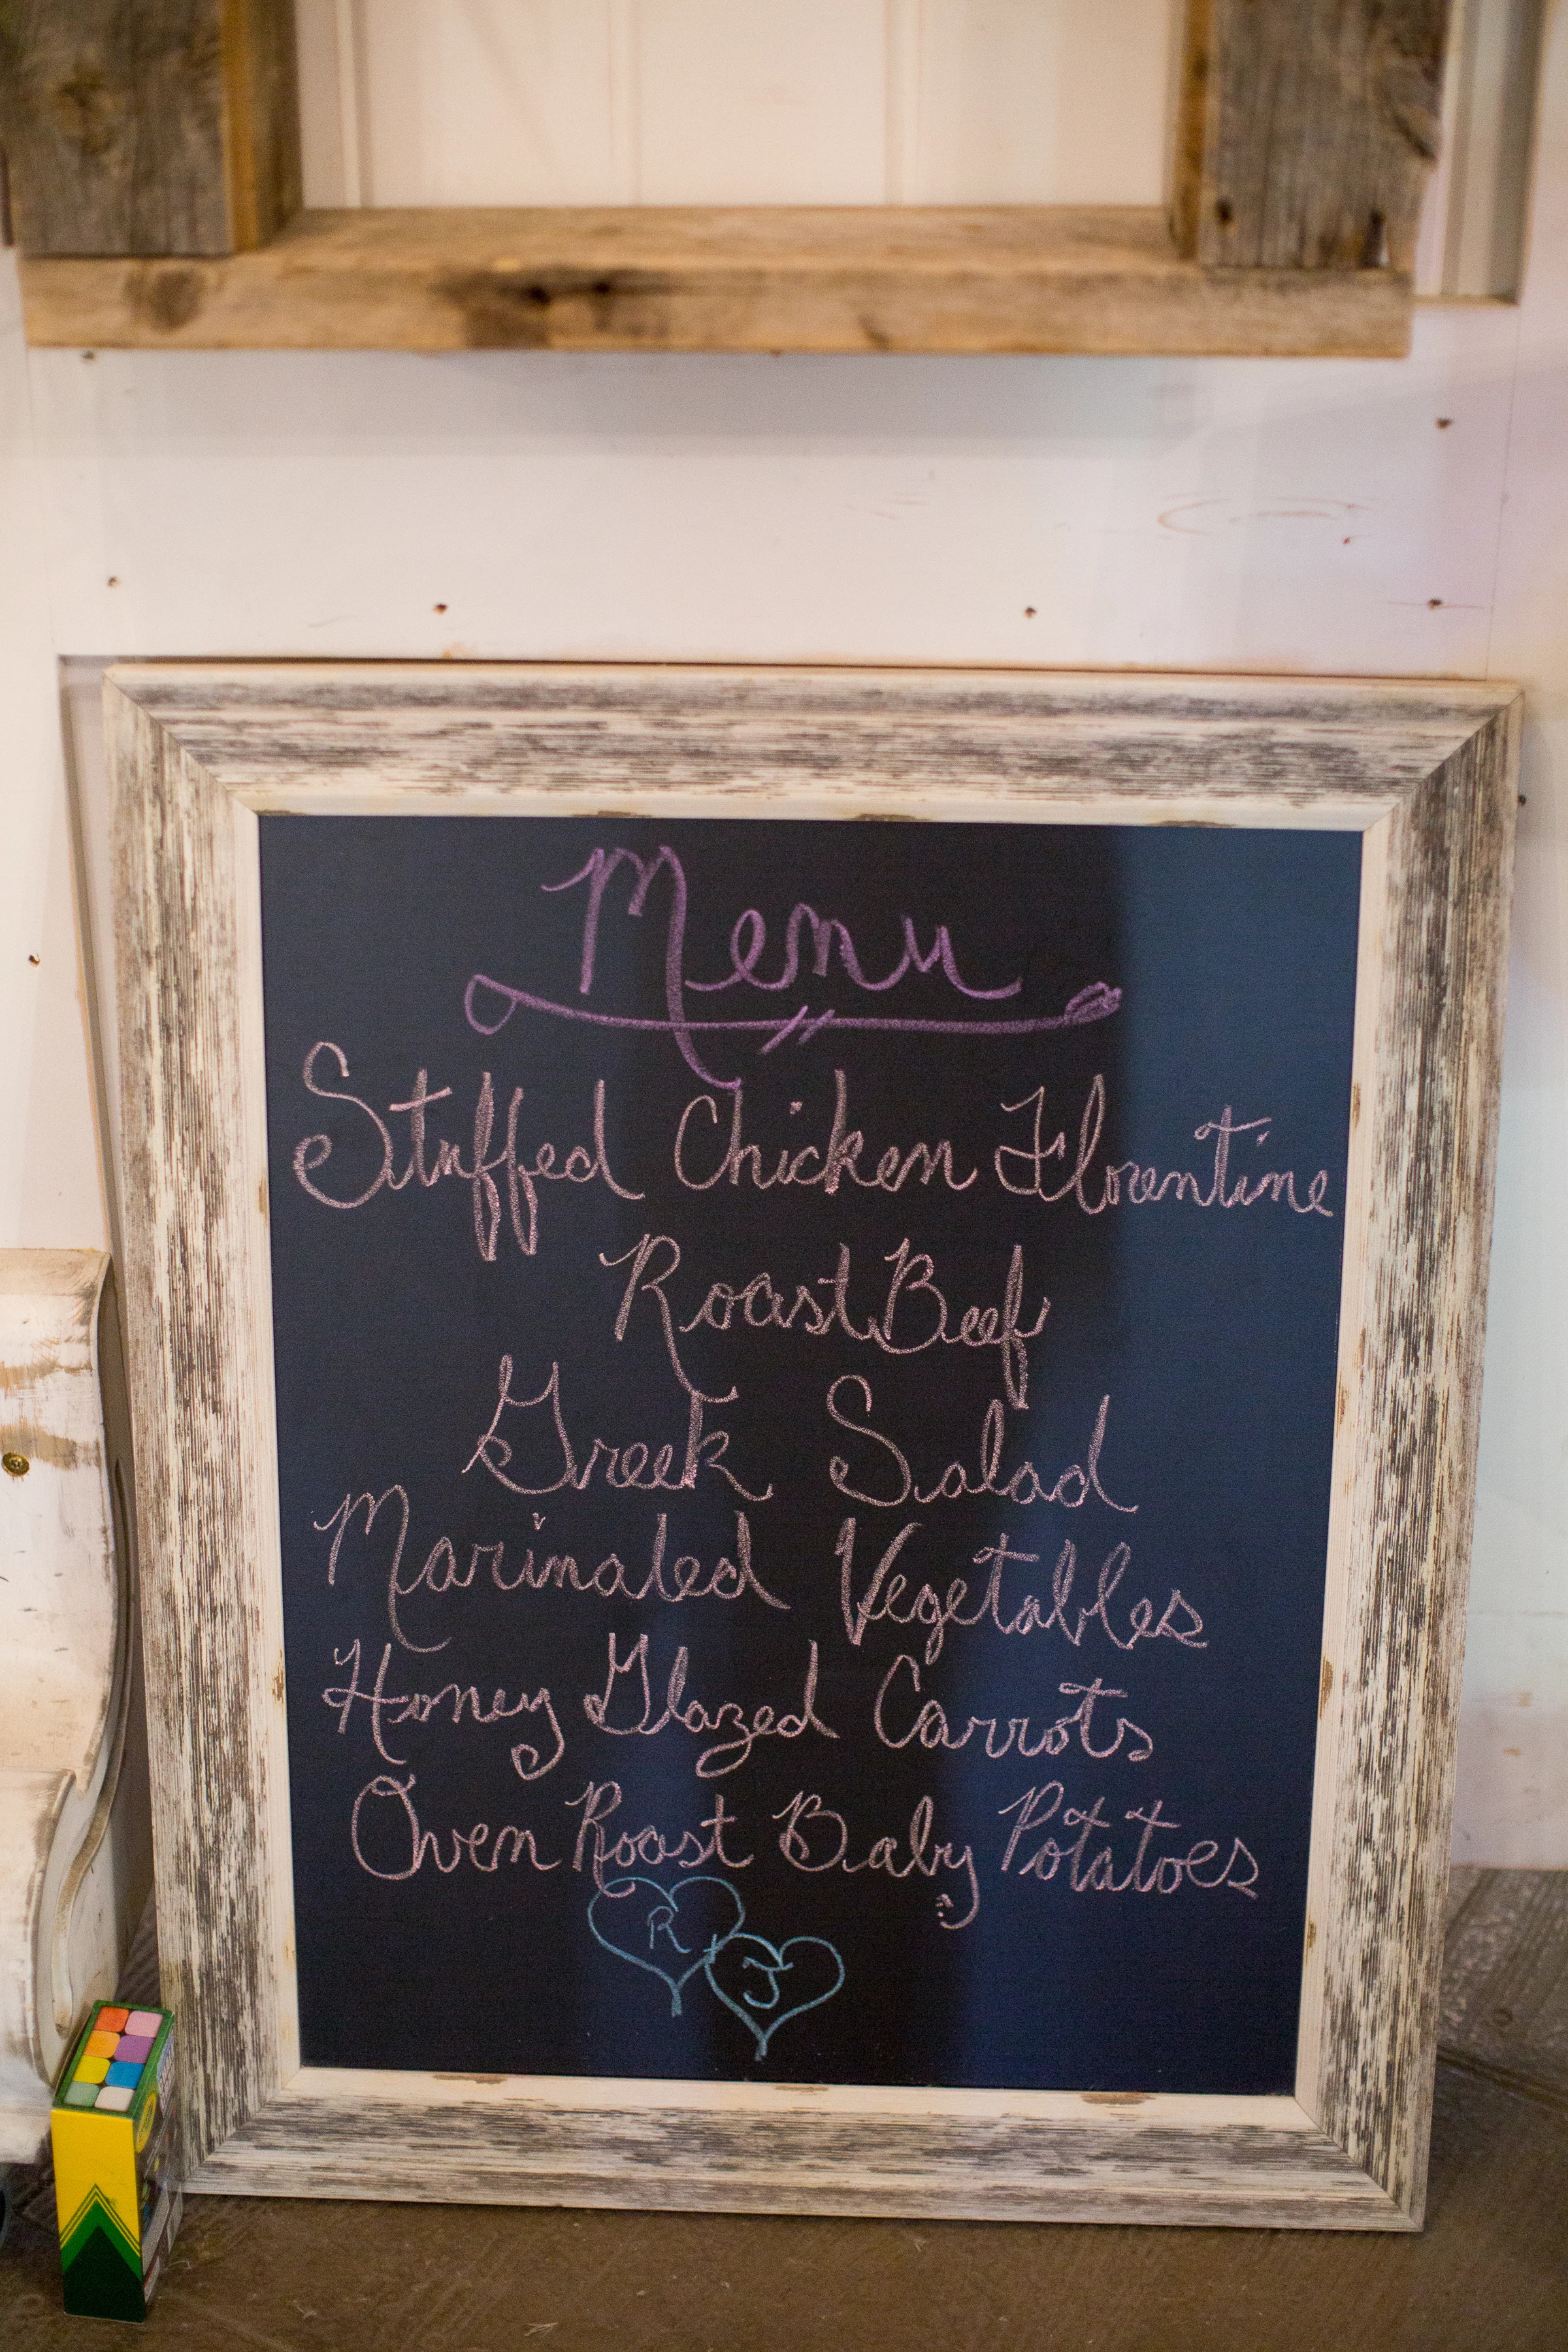 Menu
Stuffed Chicken Florentine
Roast Beef
Greek Salad
Marinated Vegetables
Honey Glazed Carrots
Oven Roast Baby Potatoes
R + J